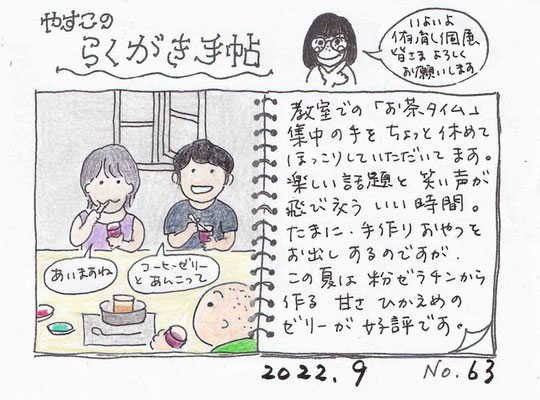 やすこの
らくがき手帖
いよいよ
個展
皆さま よろしく
お願いします
教室での「お茶タイム」
集中の手を ちょっと休めて
ほっこりしていただいてます。
楽しい話題と 笑い声が
飛び交う いい時間。
たまに、手作りおやつを
お出しするのですが、
この夏は 粉ゼラチンから
作る 甘さ ひかえめの
ゼリーが 好評です。
あいますね
コーヒーゼリー
とあんこって
2022.9
No.63